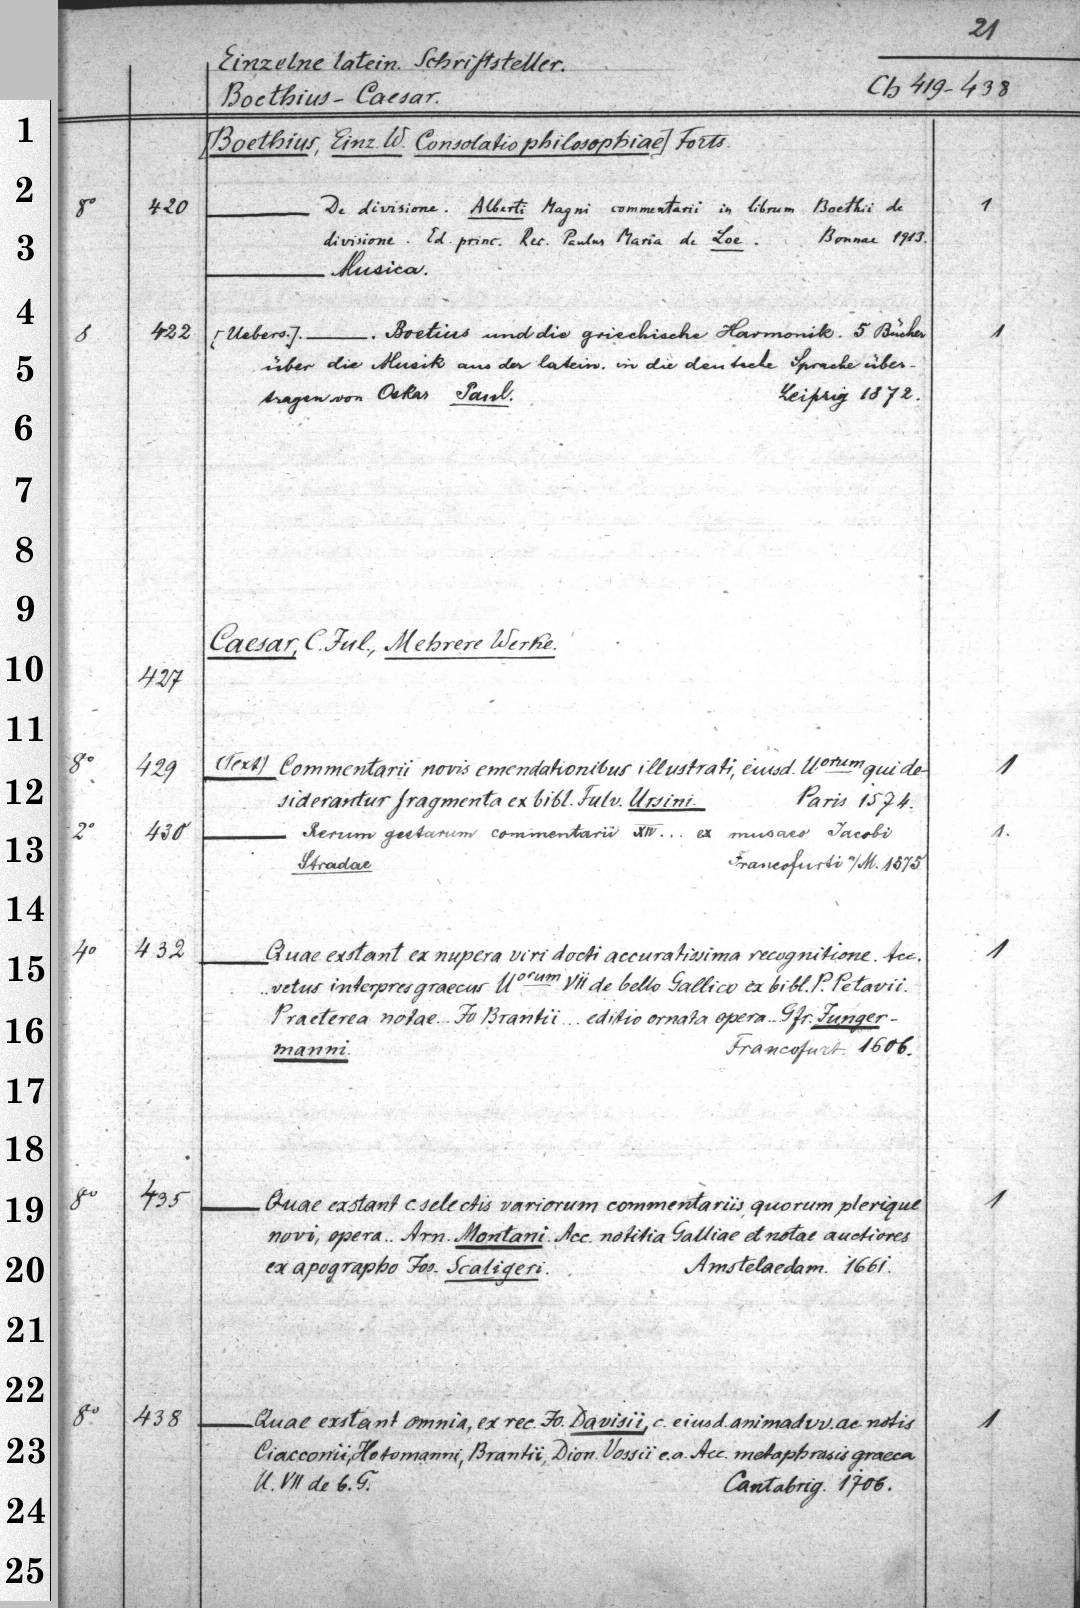 21
Einzelne latein. Schriftsteller.
Boethius - Caesar.
Cb 419-438
1
[Boethius, Einz. W. Consolatio philosophiae] Forts.
2
8° 420 De divisione. Alberti Magni commentarii in librum Boethii de 1
3
divisione. Ed. princ. Rec. Paulus Maria de Loe. Bonnae 1913.
Musica.
4
8 422 [Uebers.]. . Boetius und die griechische Harmonik. 5 Bücher 1
5
über die Musik aus der latein. in die deutsche Sprache über-
tragen von Oskar Paul. Leipzig 1872.
6
7
8
9
Caesar, C. Jul., Mehrere Werke.
10
427
11
8° 429 (Text) Commentarii novis emendationibus illustrati, eiusd. ll orum qui de- 1
12
siderantur fragmenta ex bibl. Fulv. Ursini. Paris 1574.
2° 430 Rerum gestarum commentarii XIV... ex musaeo Jacobi 1.
13
Stradae Francofurti a/M. 1575
14
4° 432 Quae exstant ex nupera viri docti accuratissima recognitione. Acc. 1
15
..vetus interpres graecus ll orum VII de bello Gallico ex bibl. P. Petavii.
16
Praeterea notae... Jo Brantii... editio ornata opera.. Gfr. Junger-
manni. Francofurt. 1606.
17
18
8° 435 Quae exstant c. selectis variorum commentariis, quorum plerique 1
19
novi, opera.. Arn. Montani. Acc. notitia Galliae et notae auctiores
20
ex apographo Jos. Scaligeri. Amstelaedam. 1661.
21
22
8° 438 Quae exstant omnia, ex rec. Jo. Davisii, c. eiusd. animadvv. ac notis 1
23
Ciacconii, Hotomanni, Brantii, Dion. Vossii e.a. Acc. metaphrasis graeca
ll. VII de b. G. Cantabrig. 1706.
24
25